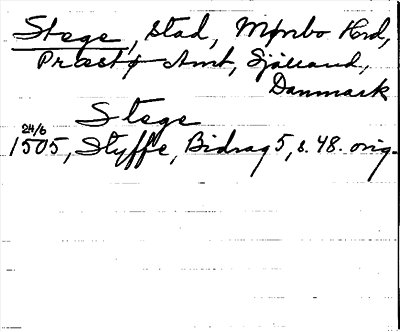 Stege, stad, Mønbo Hrd,
Præstø Amt, Själland,
Danmark
Stege
24/6
1505, Styffe, Bidrag 5, s. 48. orig.